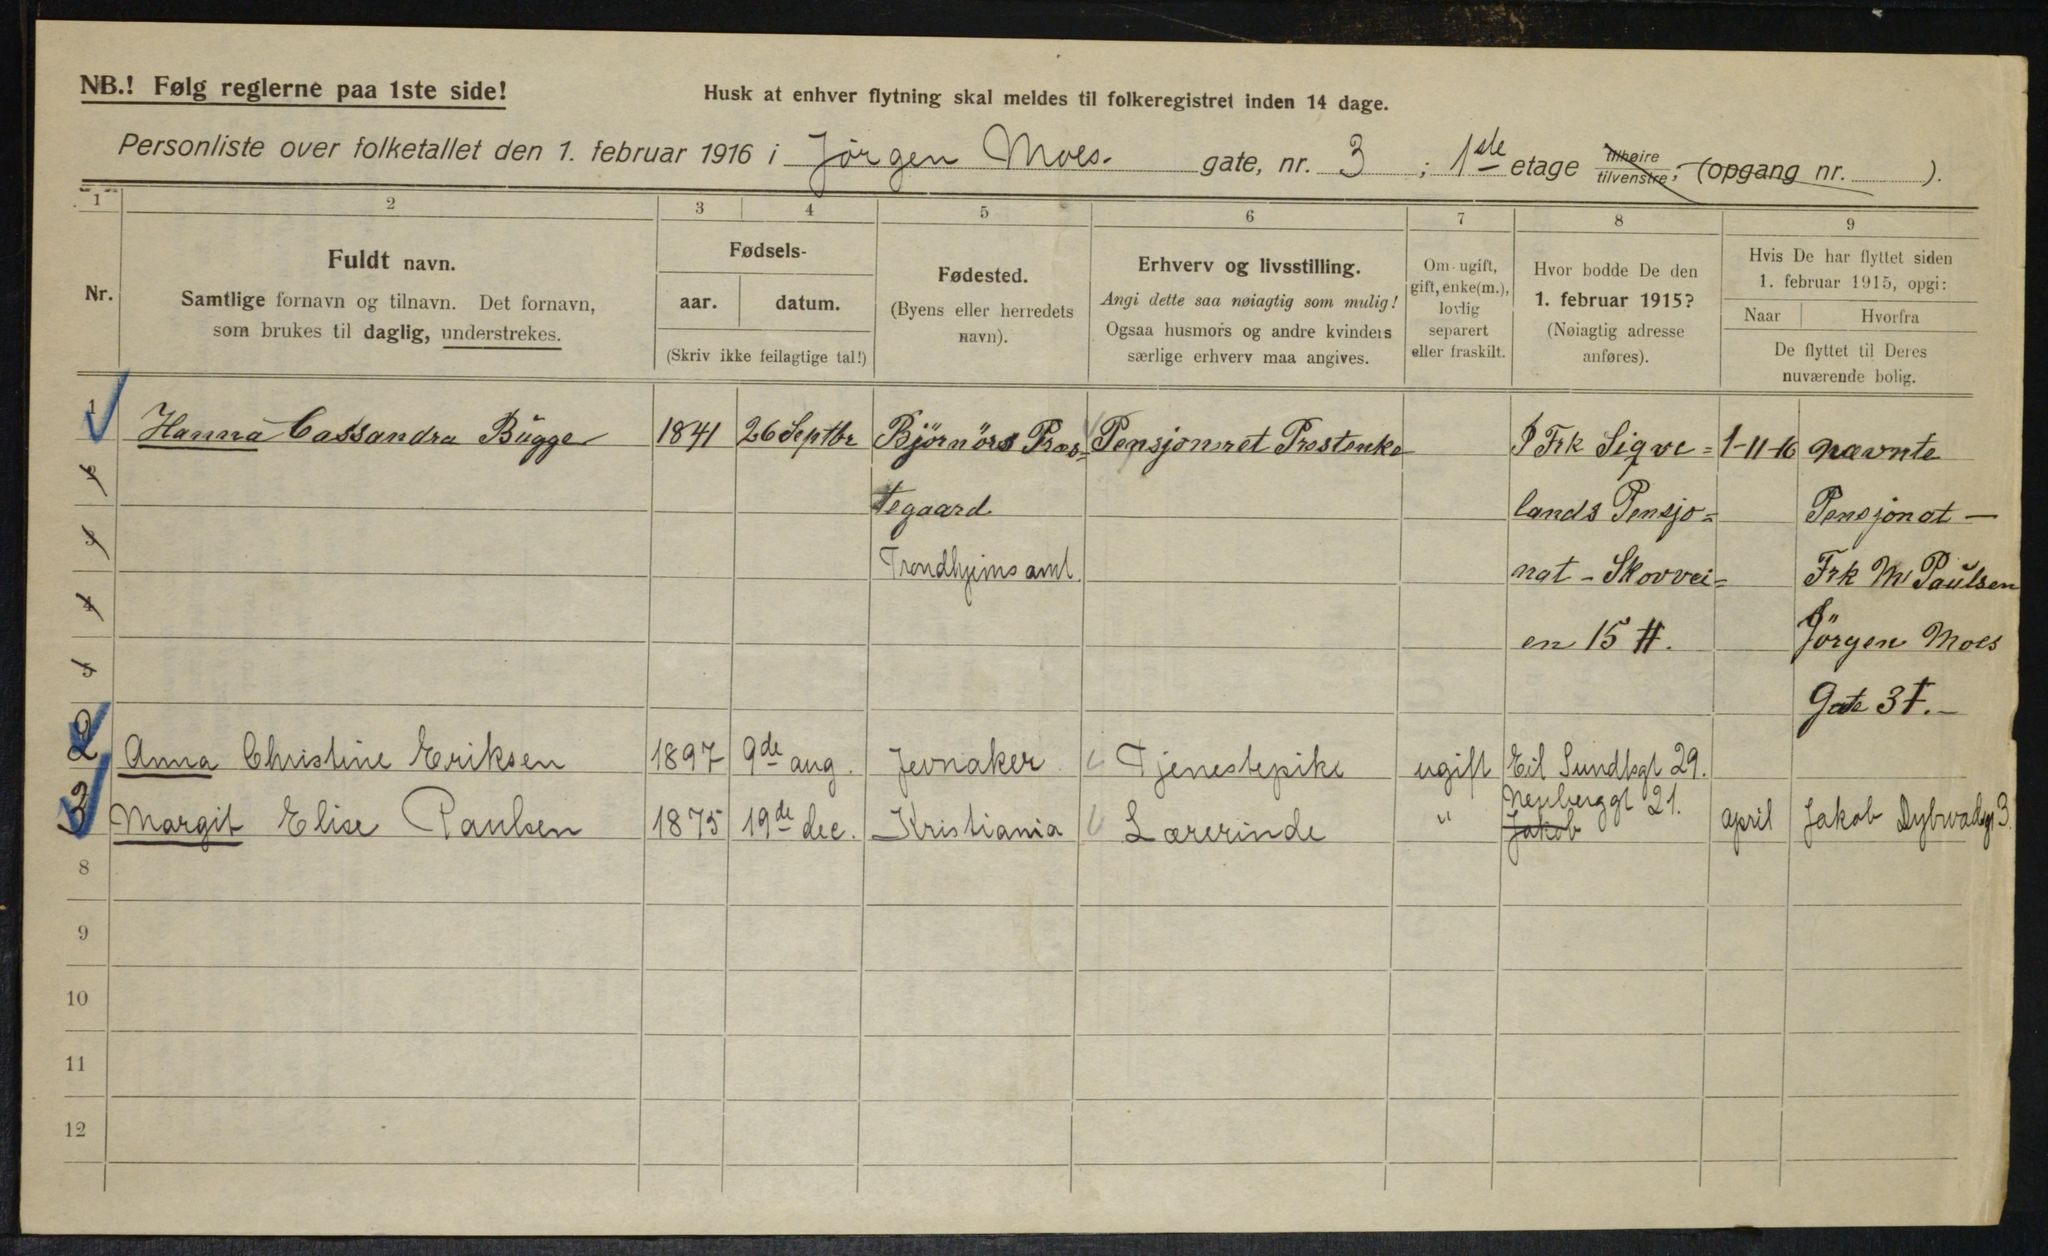 NB.! Følg reglerne paa 1ste side!
Husk at enhver flytning skal meldes til folkeregistret inden 14 dage.
Personliste over folketallet den 1. februar 1916 i Jørgen Moes. gate, nr. 3 ; 1ste etage tilhøire tilvenstre, (opgang nr. ).
1 2 3 4 5 6 7 8 9
Nr.
Fuldt navn.
Samtlige fornavn og tilnavn. Det fornavn,
som brukes til daglig, understrekes.
Fødsels-
aar. datum.
(Skriv ikke feilagtige tal!)
Fødested.
(Byens eller herredets
navn).
Erhverv og livsstilling.
Angi dette saa nøiagtig som mulig!
Ogsaa husmors og andre kvinders
særlige erhverv maa angives.
Om ugift,
gift, enke(m.),
lovlig
separert
eller fraskilt.
Hvor bodde De den
1. februar 1915?
(Nøiagtig adresse
anføres).
Hvis De har flyttet siden
1. februar 1915, opgi:
Naar Hvorfra
De flyttet til Deres
nuværende bolig.
1 Hanna Cassandra Bugge 1841 26 Septbr Björnörs Præs= Pensjoneret Prestenke I Frk Sigve= 1-11-16 nævnte
2 tegaard lands Pensjo= Pensjonat —
3 Trondhjems amt. nat - Skovvei= Frk M Paulsen
4 en 15 II. Jörgen Moes
5 Gate 3 I. —
2 Anna Christine Eriksen 1897 9de aug. Jevnaker Tjenestepike ugift Eil Sundtsgt 29.
3 Margit Elise Paulsen 1875 19de dec. Kristiania Lærerinde " 21. Jakob april Jakob Dybwadsgt 3.
8
9
10
11
12